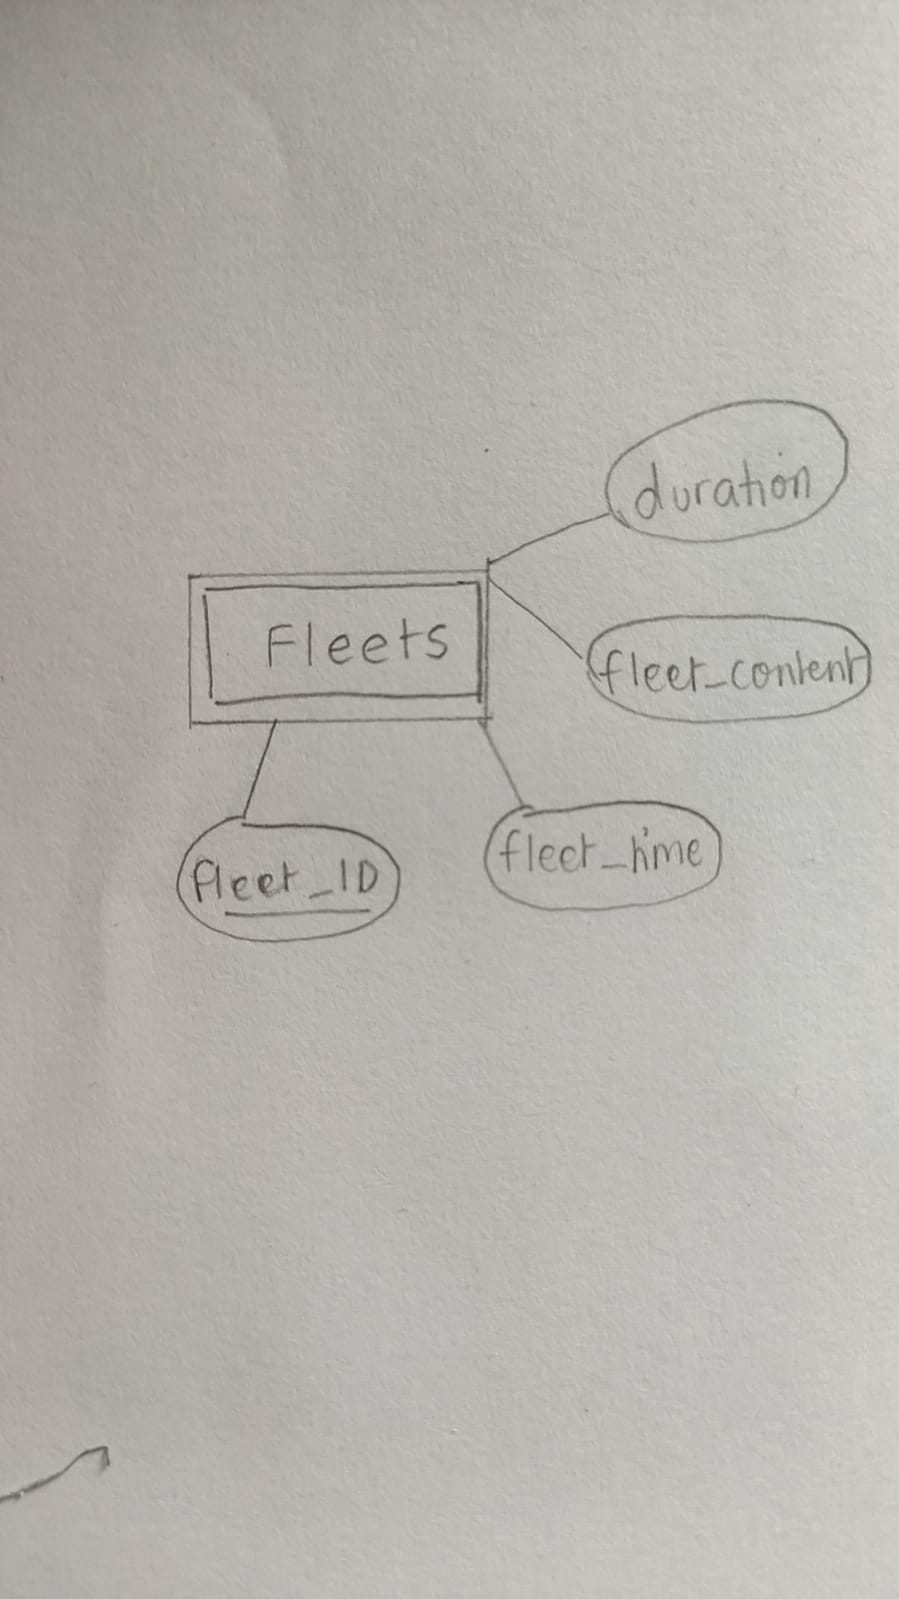 duration
Fleets
fleet_content
fleet_ID
fleet_time